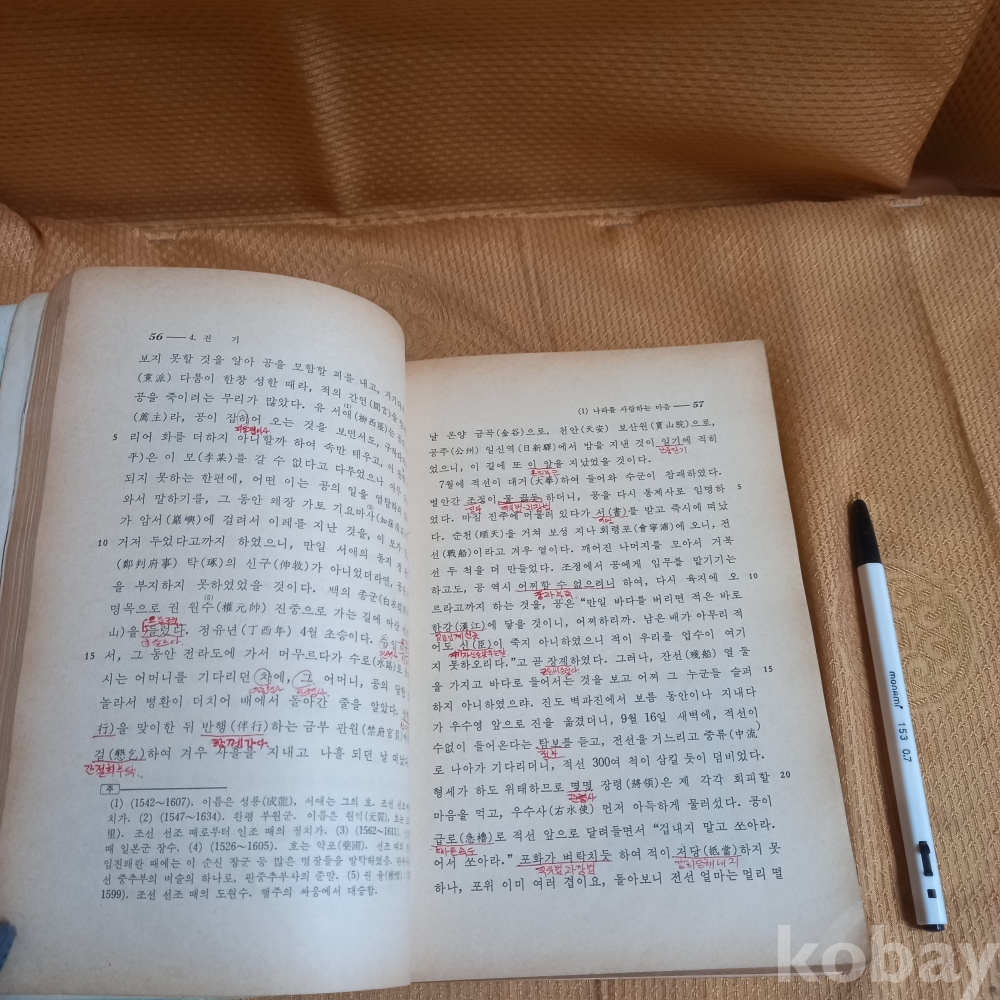 56 — 4. 전 기
보지 못할 것을 알아 공을 모함할 꾀를 내고, 거기다
(黨派) 다툼이 한창 성한 때라, 적의 간언(間言)을
공을 죽이려는 무리가 많았다. 유 서애(柳西厓)는 공
(薦主)라, 공이 잡히어 오는 것을 보면서도,
5 리어 화를 더하지 아니할까 하여 속만 태우고, 이
平)은 이 모(李某)를 갈 수 없다고 다투었으나 아무
되지 못하는 한편에, 어떤 이는 공의 일을 염탐하
와서 말하기를, 그 동안 왜장 가토 기요마사
가 암서(巖嶼)에 걸려서 이레를 지난 것을, 이 모가
10 거저 두었다고까지 하였으니, 만일 서애의 동지 정
(鄭判府事) 탁(琢)의 신구(伸救)가 아니었더라면, 공
을 부지하지 못하였었을 것이다. 백의 종군(白衣
명목으로 권 원수(權元帥) 진중으로 가는 길에 아산
山)을 들렀다. 정유년(丁酉年) 4월 초승이다.
15 서, 그 동안 전라도에 가서 머무르다가 수로(水路)로
시는 어머니를 기다리던 차에, 그 어머니, 공의
놀라서 병환이 더치어 배에서 돌아간 줄을 알았다.
行)을 맞이한 뒤 반행(伴行)하는 금부 관원(禁府官員)
걸(懇乞)하여 겨우 사을을 지내고 나흘 되던 날 떠
간절히부탁
주
(1) (1542~1607). 이름은 성룡(成龍), 서애는 그의 호. 조선 선조
치가. (2) (1547~1634). 완평 부원군. 이름은 원익(元翼), 호는
里). 조선 선조 때로부터 인조 때의 정치가. (3) (1562~1611).
때 일본군 장수. (4) (1526~1605). 호는 약포(藥圃). 선조 때의
임진왜란 때에는 이 순신 장군 등 많은 명장들을 발탁하였음.
선 중추부의 벼슬의 하나로, 판중추부사의 준말. (5) 권 율
1599). 조선 선조 때의 도원수. 행주의 싸움에서 대승함.
(1) 나라를 사랑하는 마음 — 57
날 온양 금곡(金谷)으로, 천안(天安) 보산원(寶山院)으로,
공주(公州) 일신역(日新驛)에서 밤을 지낸 것이 일기에 적히
었으니, 이 길에 또 이 앞을 지났었을 것이다.
7월에 적선이 대거(大擧)하여 들어와 수군이 참패하였다.
별안간 조정이 물 끓듯 하더니, 공을 다시 통제사로 임명하 5
였다. 마침 진주에 머물러 있다가 서(書)를 받고 즉시에 떠났
다. 순천(順天)을 거쳐 보성 지나 회령포(會寧浦)에 오니, 전
선(戰船)이라고 겨우 열이다. 깨어진 나머지를 모아서 거북
선 두 척을 더 만들었다. 조정에서 공에게 임무를 맡기기는
하고도, 공 역시 어찌할 수 없으려니 하여, 다시 육지에 오 10
르라고까지 하는 것을, 공은 “만일 바다를 버리면 적은 바로
한강(漢江)에 닿을 것이니, 어찌하리까. 남은 배가 아무리 적
어도 신(臣)이 죽지 아니하였으니 적이 우리를 업수이 여기
지 못하오리다.”고 곧 장계하였다. 그러나, 잔선(殘船) 열 둘
을 가지고 바다로 들어서는 것을 보고 어찌 그 누군들 슬퍼 15
하지 아니하였으랴. 진도 벽파진에서 보름 동안이나 지내다
가 우수영 앞으로 진을 옮겼더니, 9월 16일 새벽에, 적선이
수없이 들어온다는 탐보를 듣고, 전선을 거느리고 중류(中流)
로 나아가 기다리더니, 적선 300여 척이 삼킬 듯이 덤비었다.
형세가 하도 위태하므로 몇몇 장령(將領)은 제 각각 회피할 20
마음을 먹고, 우수사(右水使) 먼저 아득하게 물러섰다. 공이
급로(急櫓)로 적선 앞으로 달려들면서 “겁내지 말고 쏘아라.
어서 쏘아라.” 포화가 벼락치듯 하여 적이 저당(抵當)하지 못
하나, 포위 이미 여러 겹이요, 돌아보니 전선 얼마는 멀리 떨
monami 153 0.7
kobay